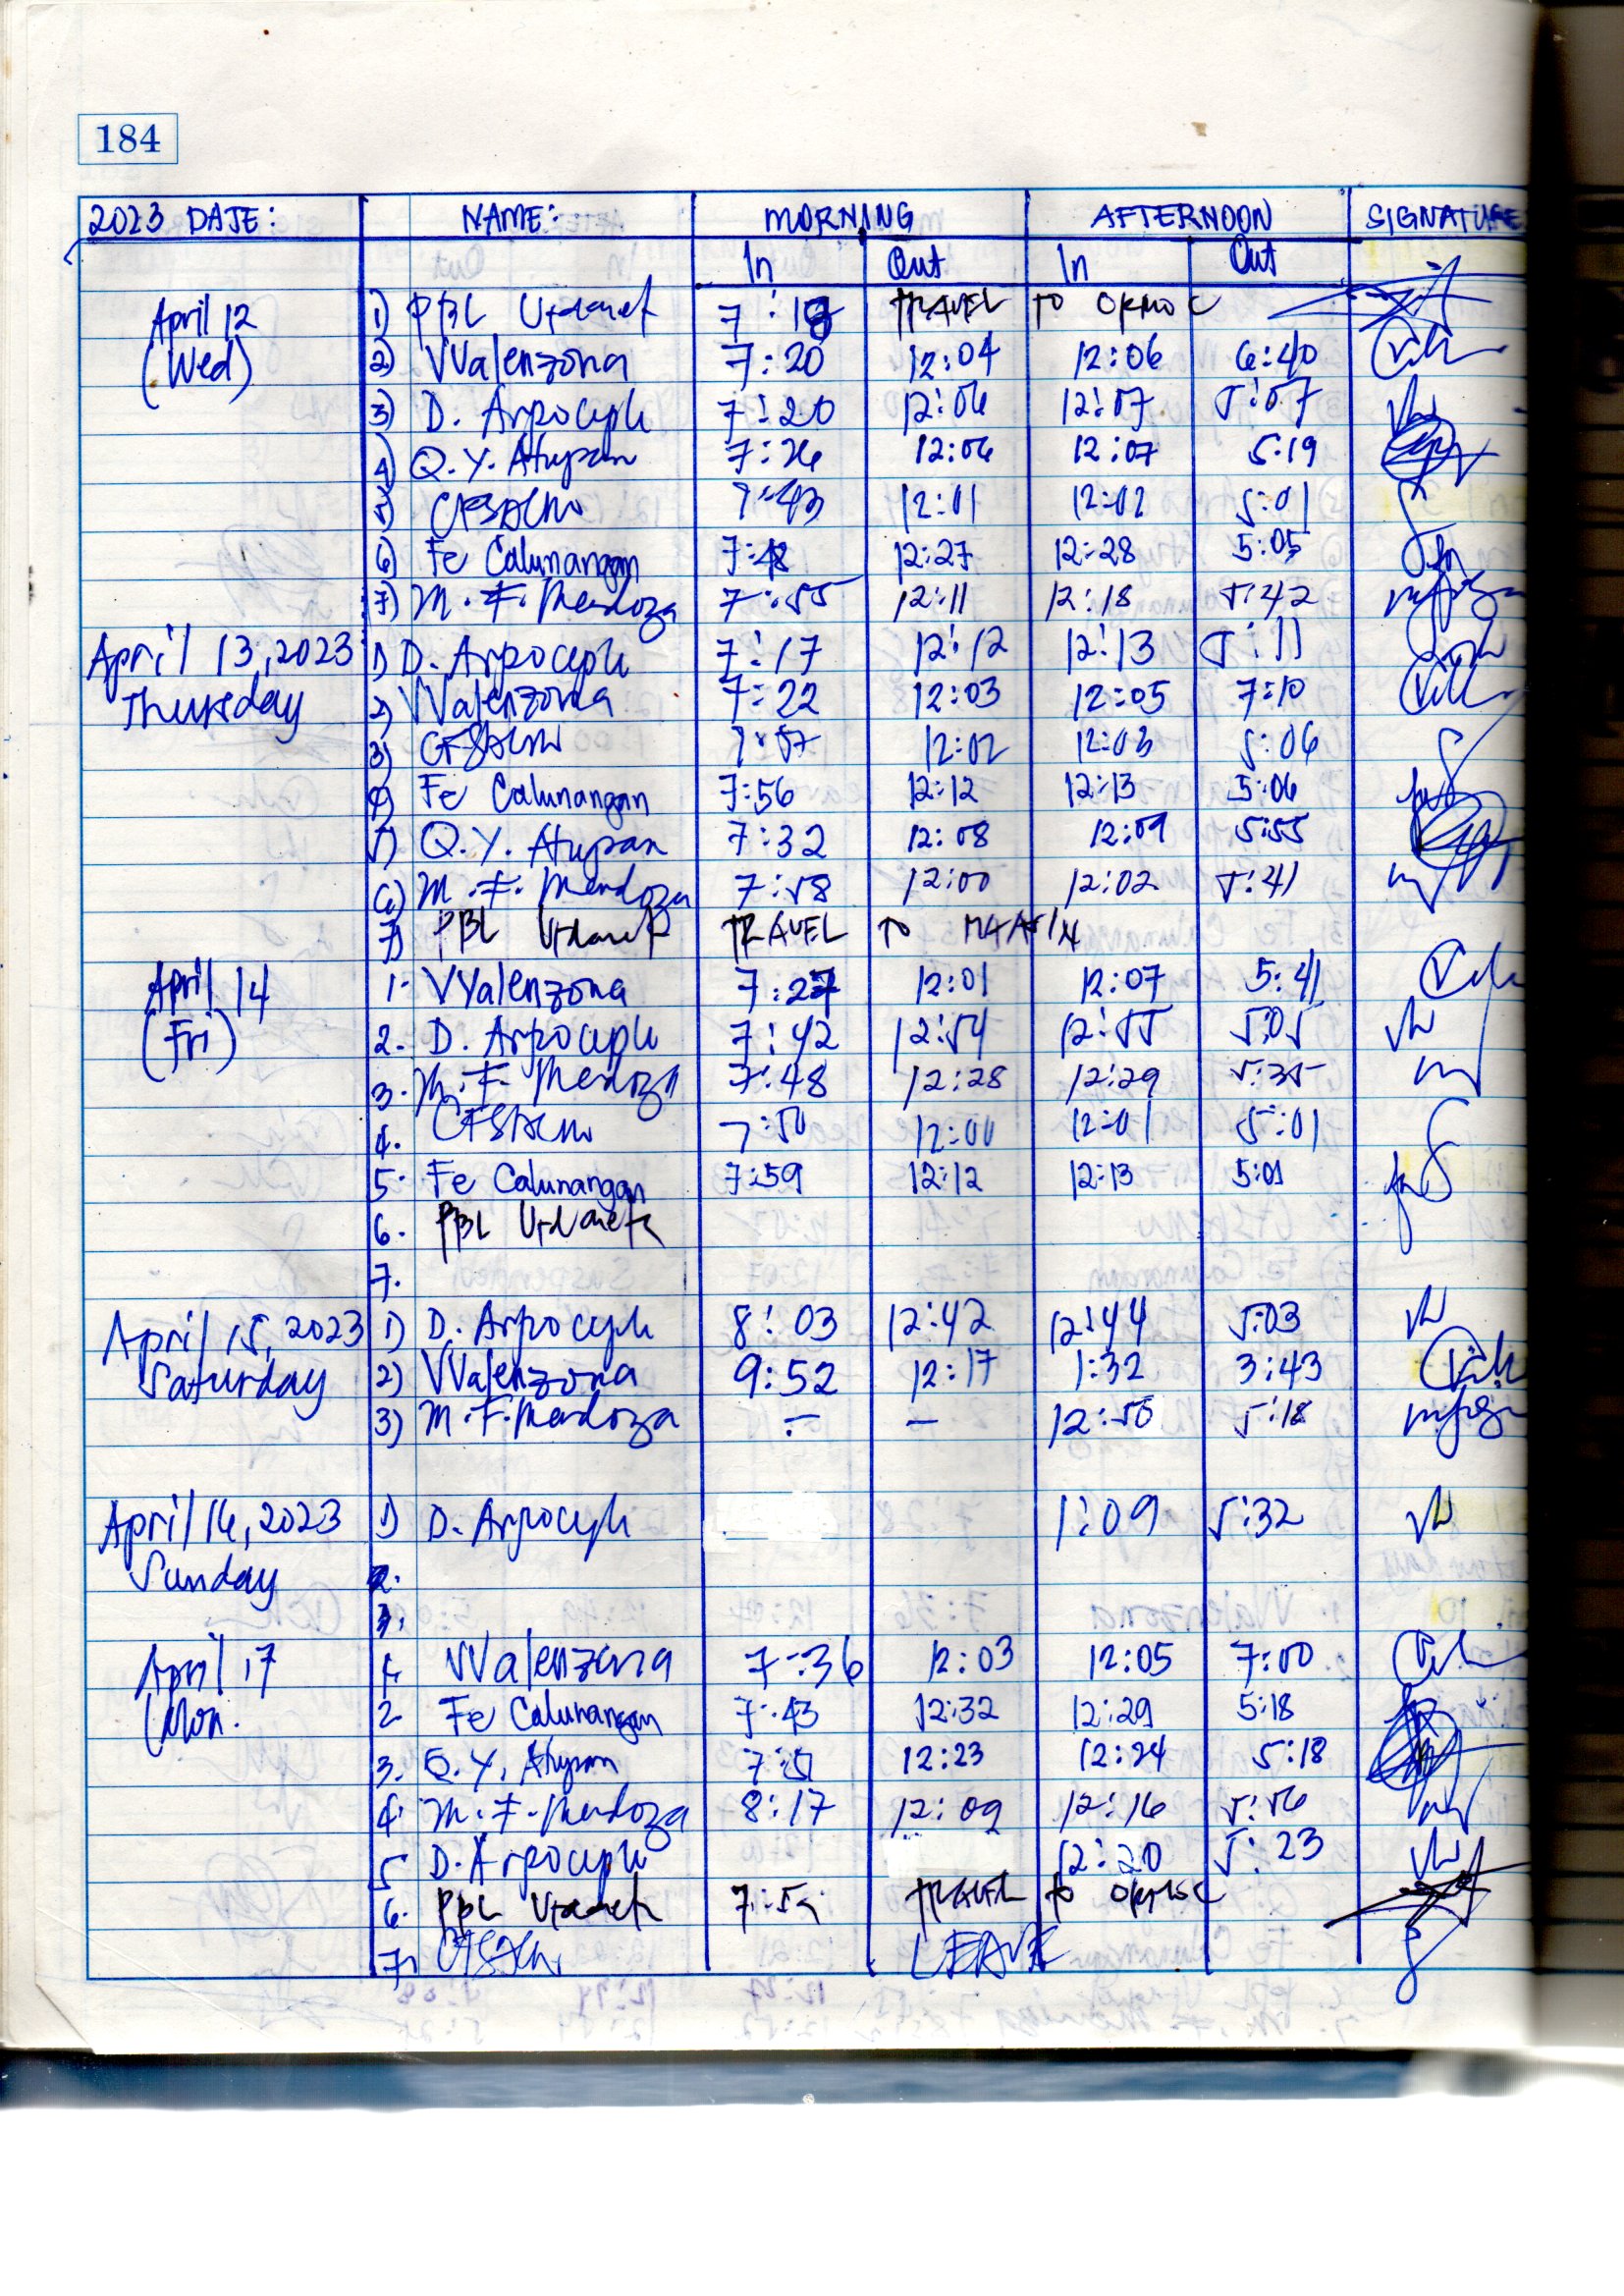 184
2023 DATE: NAME: MORNING AFTERNOON SIGNATURE
In Out In Out
April 12 1) PBL 7:18 TRAVEL TO ORMOC
(Wed) 2) VValenzona 7:20 12:04 12:06 6:40
3) D. Arpoceple 7:20 12:06 12:07 5:07
4) Q.Y. Atupan 7:26 12:06 12:07 5:19
5) 7:43 12:01 12:02 5:01
6) Fe Calunangan 7:48 12:27 12:28 5:05
7) M.F. Mendoza 7:55 12:11 12:18 5:42
April 13, 2023 1) D. Arpoceple 7:17 12:12 12:13 5:11
Thursday 2) VValenzona 7:22 12:03 12:05 7:10
3) 7:57 12:02 12:03 5:06
4) Fe Calunangan 7:56 12:12 12:13 5:06
5) Q.Y. Atupan 7:32 12:08 12:09 5:55
6) M.F. Mendoza 7:58 12:00 12:02 5:41
7) PBL TRAVEL TO MAASIN
April 14 1. VValenzona 7:27 12:01 12:07 5:41
(Fri) 2. D. Arpoceple 7:42 12:54 12:55 5:05
3. M.F. Mendoza 7:48 12:28 12:29 5:35
4. 7:50 12:00 12:01 5:01
5. Fe Calunangan 7:59 12:12 12:13 5:01
6. PBL
7.
April 15, 2023 1) D. Arpoceple 8:03 12:42 12:44 5:03
Saturday 2) VValenzona 9:52 12:17 1:32 3:43
3) M.F. Mendoza – – 12:50 5:18
April 16, 2023 1) D. Arpoceple 1:09 5:32
Sunday 2.
3.
April 17 1. VValenzona 7:36 12:03 12:05 7:00
(Mon. 2 Fe Calunangan 7:43 12:32 12:29 5:18
3. Q.Y. Atupan 7:51 12:23 12:24 5:18
4. M.F. Mendoza 8:17 12:09 12:16 5:56
5 D. Arpoceple 12:20 5:23
6. PBL 7:59 TRAVEL TO ORMOC
7. LEAVE